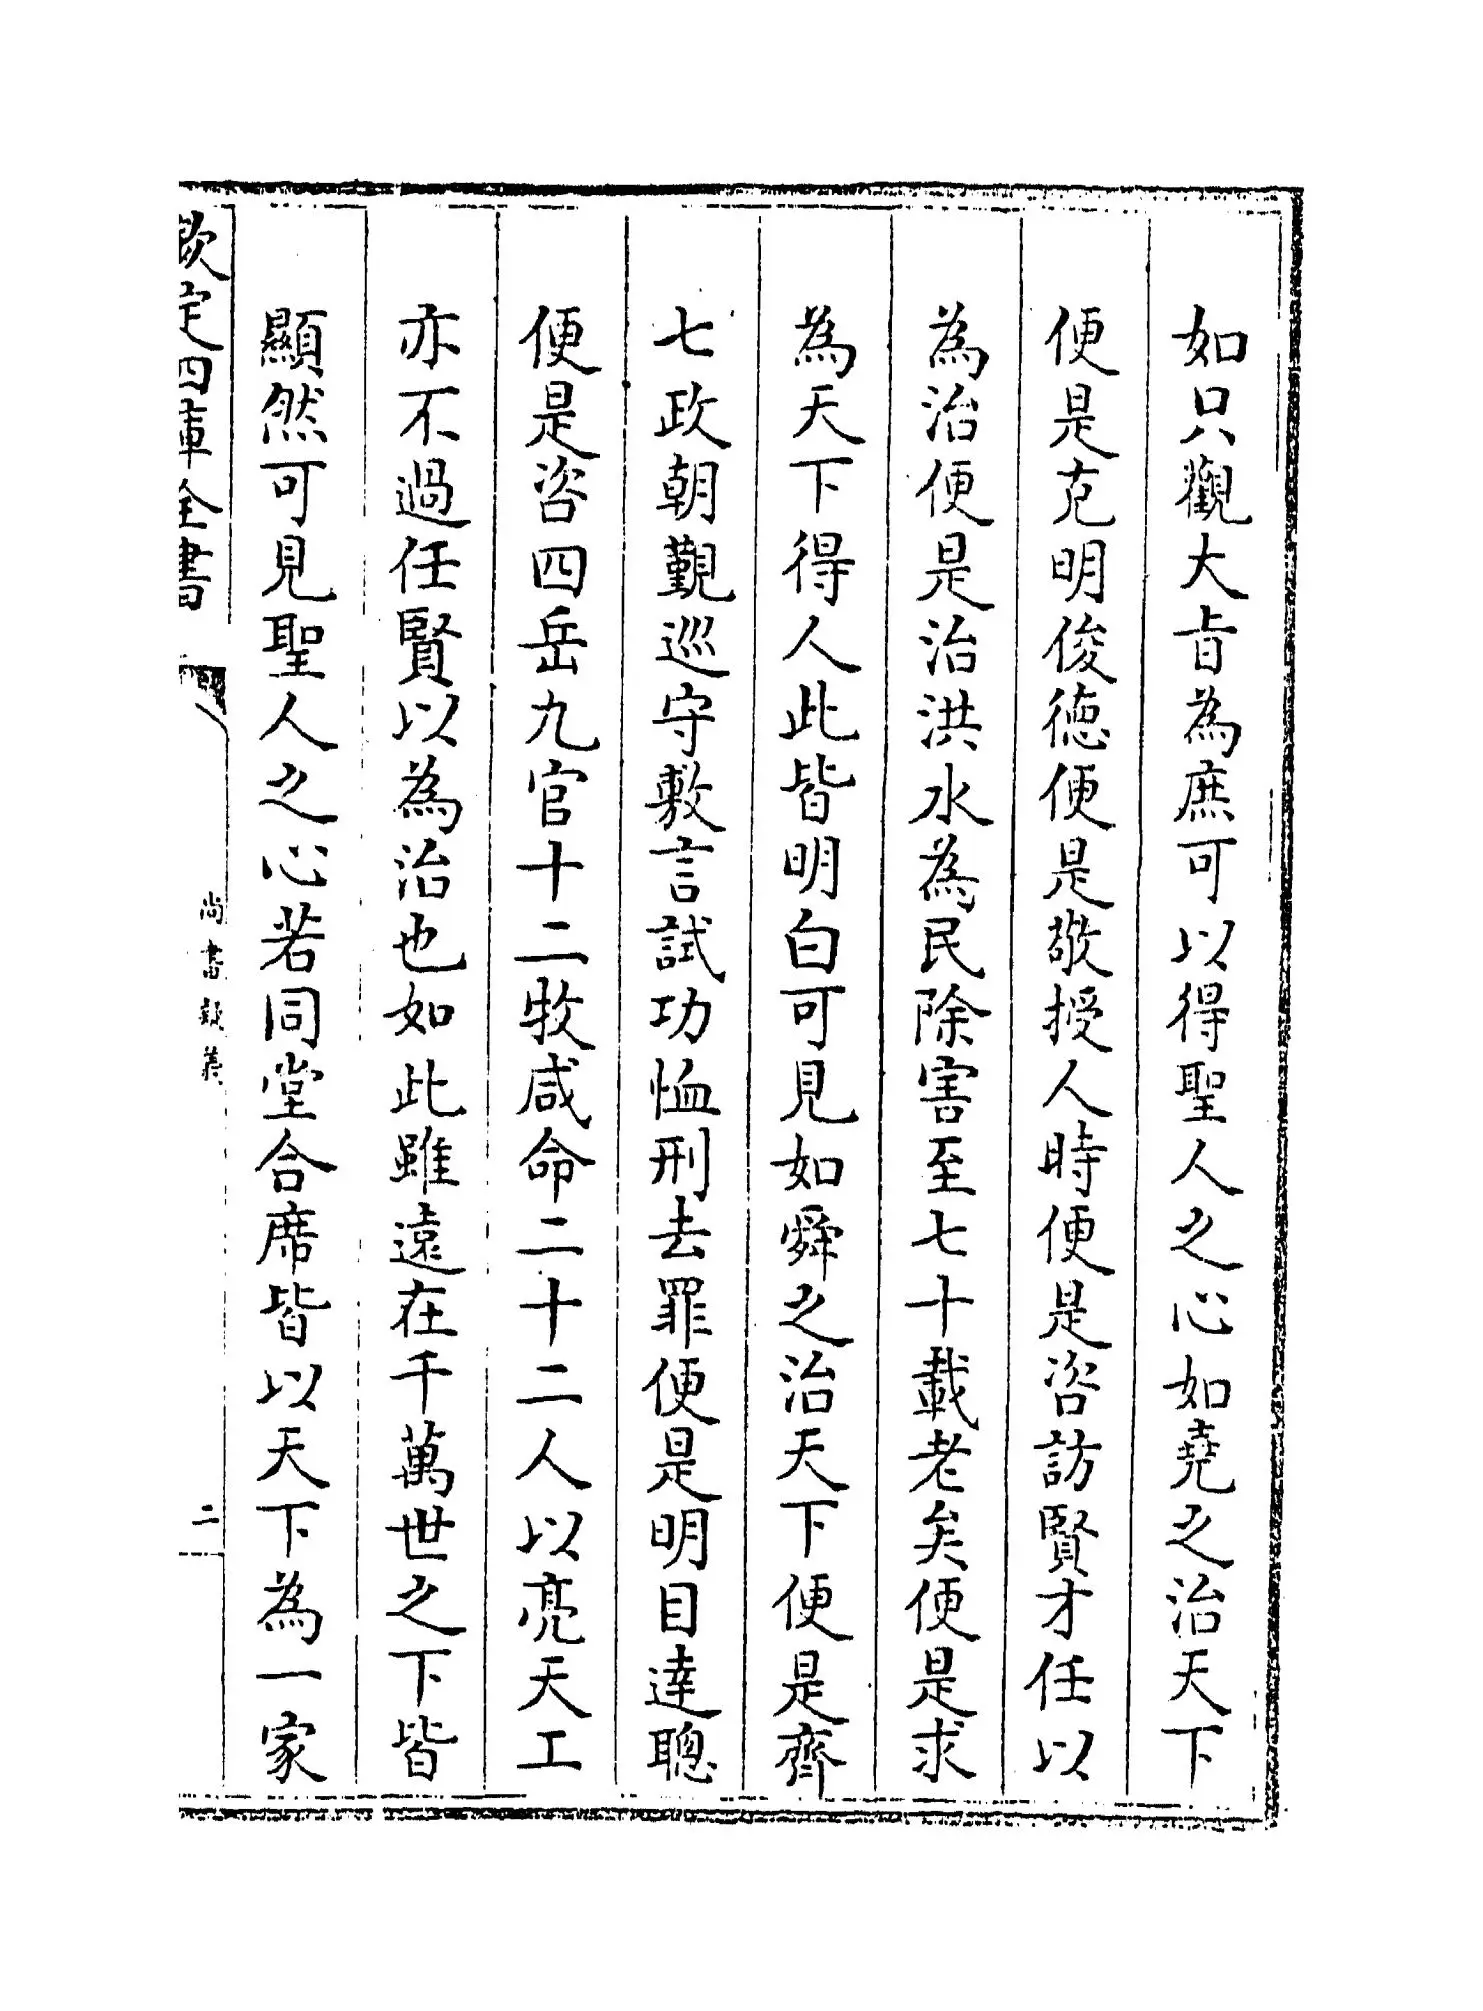 如只觀大旨為庶可以得聖人之心如堯之治天下
便是克明俊德便是敬授人時便是咨訪賢才任以
為治便是治洪水為民除害至七十載老矣便是求
為天下得人此皆明白可見如舜之治天下便是齊
七政朝覲巡守敷言試功恤刑去罪便是明目達聰
便是咨四岳九官十二牧咸命二十二人以亮天工
亦不過任賢以為治也如此雖遠在千萬世之下皆
顯然可見聖人之心若同堂合席皆以天下為一家
欽定四庫全書
尚書疑義
二